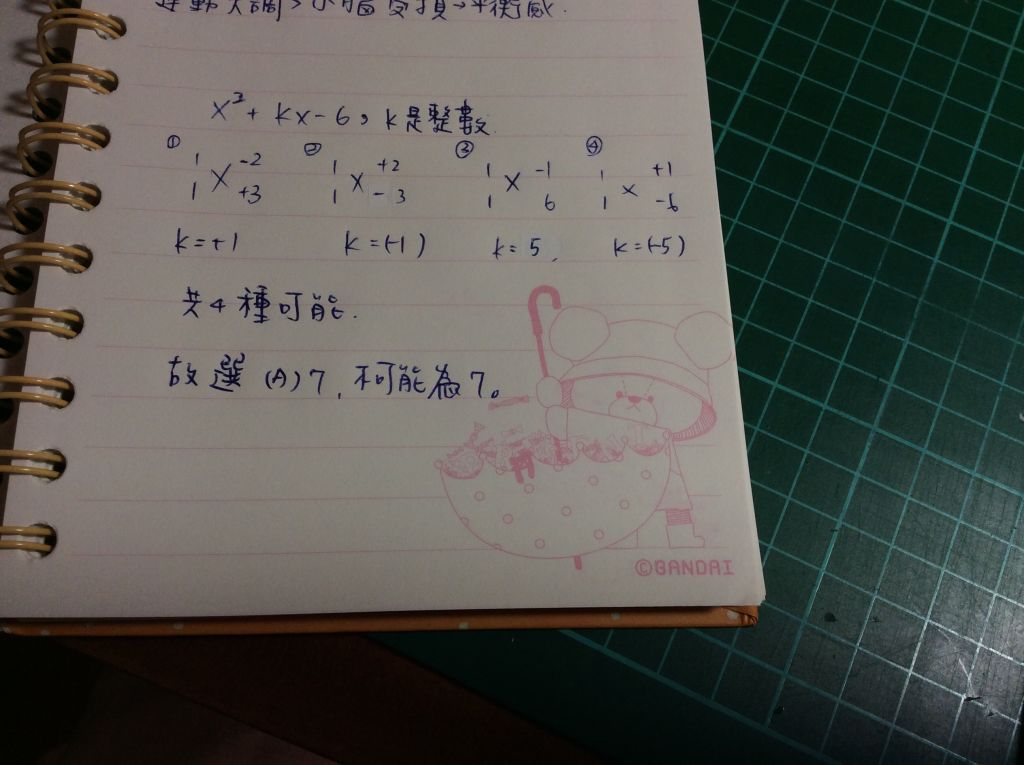 運動失調→小腦受損→平衡感.
x²+kx-6，k是整數.
① ② ③ ④
1 -2 1 +2 1 -1 1 +1
× × × ×
1 +3 1 -3 1 6 1 -6
k=+1 k=(-1) k=5, k=(-5)
共4種可能.
故選(A)7，不可能為7。
©BANDAI